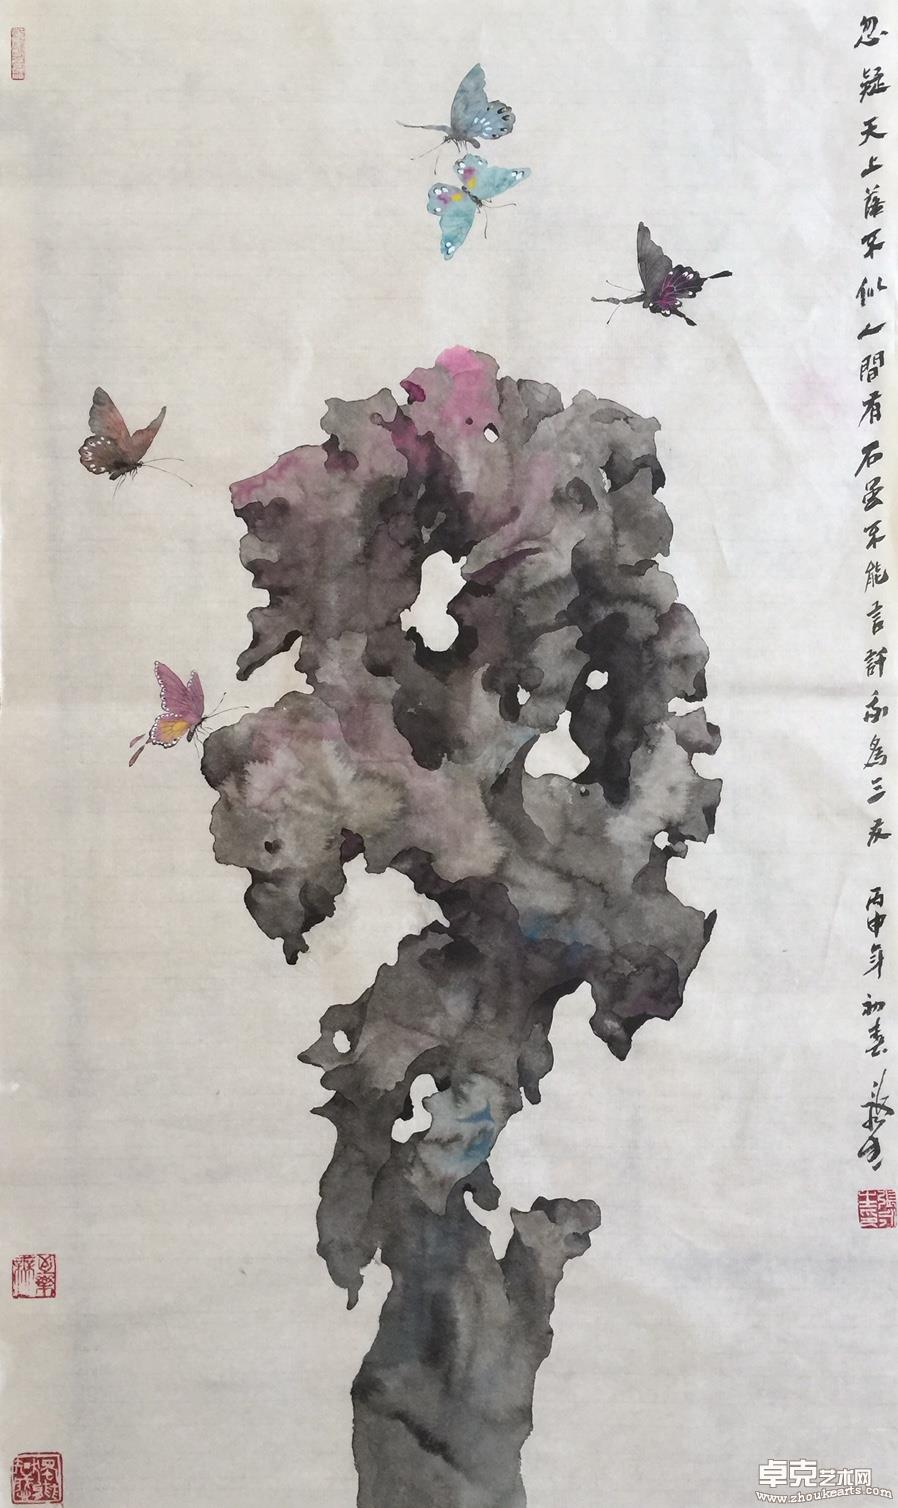 忽疑天上落不似人間有石虽不能言許我為三友 丙申年 初春
卓克艺术网
www.zhoukearts.com